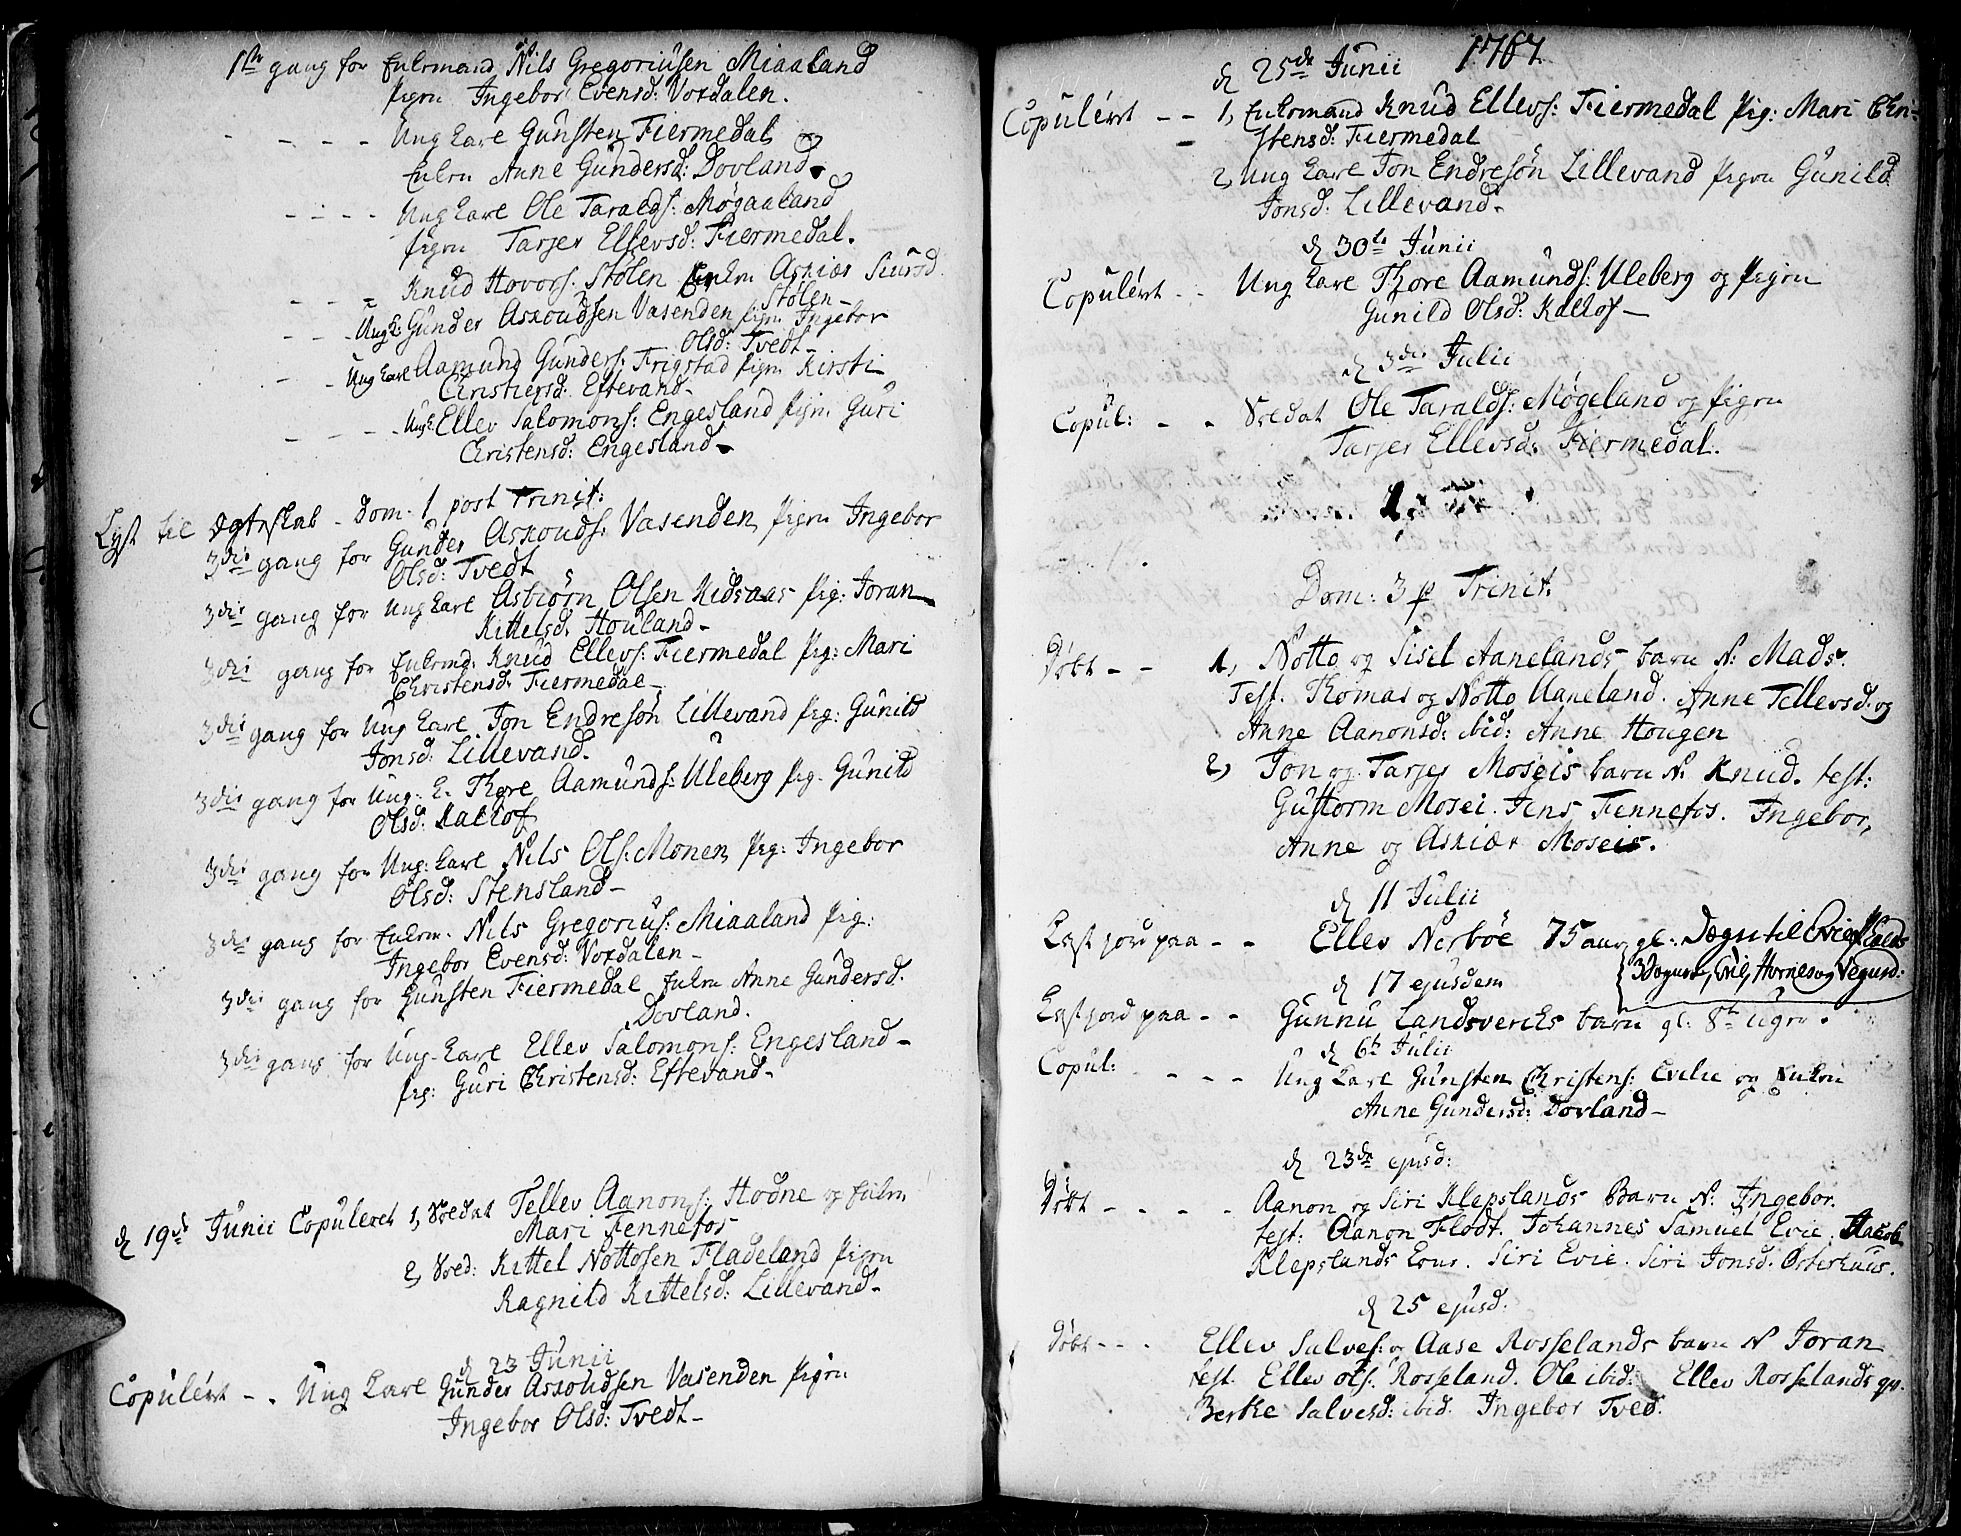 1ste gang for Enkemand Nils Gregoriusen Miaaland
pigen Ingebor Evensd: Voxdalen.
- - - - Ung karl Gunsten Fiermedal og
Enken Anne Gundersd: Dovland.
- - - - Ung karl Ole Taralds: Møgaaland
pigen Tarjer Ellevsd: Fiermedal.
- - - Knud Hovors: Stølen Enken Askier Siursd
Stølen -
- - - Ung k: Gunder Asxoudsen Vasenden pigen Ingebor
Olsd: Tvedt -
- - Ung karl Aamund Gunders: Frigstad pigen Kirsti
Christensd: Eftevand -
- - - - Ung k: Ellev Salomons: Engesland pigen Guri
Christensd: Engesland -
Lyst til Ægteskab - Dom. 1 post Trinit:
3die gang for Gunder Asxouds: Vasenden, pigen Ingebor
Olsd: Tvedt
3die gang for Ung karl Asbiørn Olsen Kidsaas pig: Joran
Kittelsd: Houland -
3die gang for Enkemd: Knud Ellevs: Fiermedal pig: Mari
Christensd: Fiermedal -
3die gang for Ung karl Jon Endresøn Lillevand pig: Gunild
Jonsd: Lillevand.
3die gang for Ung: k. Thore Aamunds: Uleberg pig: Gunild
Olsd: Kallof
3die gang for Ung: karl Nils Ols: Monen, pig: Ingebor
Olsd: Stensland -
3die gang for Enkem. Nils Gregorius: Miaaland pig:
Ingebor Evensd: Voxdalen -
3die gang for Gunsten Fiermedal Enken Anne Gundersd.
Dovland.
3die gang for Ung-karl Ellev Salomons: Engesland -
pig: Guri Christensd: Eftevand -
d 19de Junii Copuleret 1, Soldat Tellev Aanons: Hodne og Enken
Mari Fennefos
2, Sold: Kittel Nottosen Fladeland pigen
Ragnild Kittelsd: Lillevand -
d 23 Junii
Copuléret - . Ung karl Gunder Asxoudsen Vasenden pigen
Ingebor Olsd: Tvedt -
1787
d 25de Junii
Copuléret - - 1, Enkemand Knud Ellevs: Fiermedal pig: Mari Chri-
stensd: Fiermedal
2, Ung karl Jon Endresøn Lillevand pigen Gunild
Jonsd: Lillevand -
d 30te Junii
Copuléret - - Ung karl Thore Aamunds: Uleberg og pigen
Gunild Olsd: Kallof -
d 3die Julii
Copul: - - Soldat Ole Taralds: Møgelund og pigen
Tarjer Ellevsd: Fiermedal.
Dom: 3 p Trinit.
Døbt - - 1, Notto og Sisel Aanelands barn N: Mads.
Test. Thomas og Notto Aaneland. Anne Tellevsd: og
Anne Aanonsd: ibid: Anne Hougen
2, Jon og Tarjer Moseis barn N: Knud. test:
Guttorm Mosei. Jens Fennefos. Ingebor,
Anne og Askiær Moseis.
d 11 Julii
Kast jord paa - - Ellev Nerbøe 75 aar gl:
d 17 ejusdem
Kast jord paa - - Gunnu Landsvercks barn gl: 8te uger.
d 6te Julii
Copul: - - - Ung karl Gunsten Christens: Evilie og Enken
Anne Gundersd: Dovland -
d 23de ejusd:
Døbt - - - - Aanon og Siri Klepslands Barn N: Ingebor.
test: Aanon Flodt. Johannes Samuel Evie. Jacob
Klepslands kone. Siri Evie. Siri Jonsd. Østerhuus.
d 25 ejusd:
Døbt - - - Ellev Salves: og Aase Rosselands barn N Joran
test. Ellev ols: Rosseland. Ole ibid: Ellev Rosselands qv.
Berthe Salvesd: ibid. Ingebor Tved.